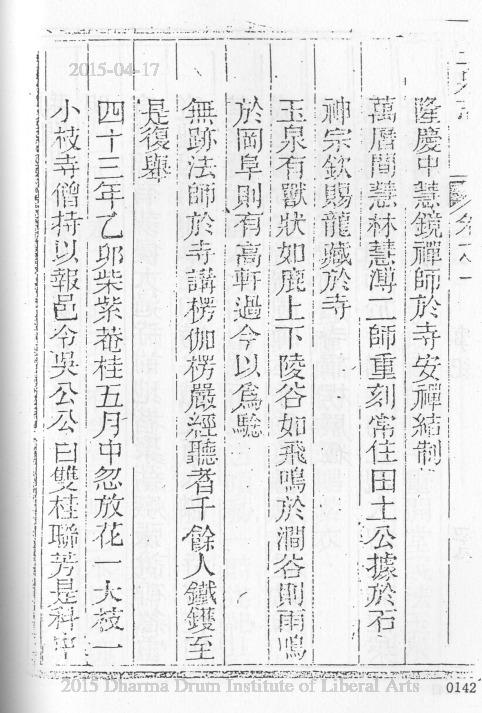 2015-04-17
隆慶中慧鏡禪師於寺安禪結制
萬曆間慧林慧溥二師重刻常住田土公據於石
神宗欽賜龍藏於寺
玉泉有獸狀如鹿上下陵谷如飛鳴於澗谷則雨鳴
於岡阜則有高軒過今以爲驗
無跡法師於寺講楞伽楞嚴經聽者千餘人鐵鑊至
是復舉
四十三年乙卯柴紫菴桂五月中忽放花一大枝一
小枝寺僧持以報邑令吳公公曰雙桂聯芳是科中
2015 Dharma Drum Institute of Liberal Arts
0142